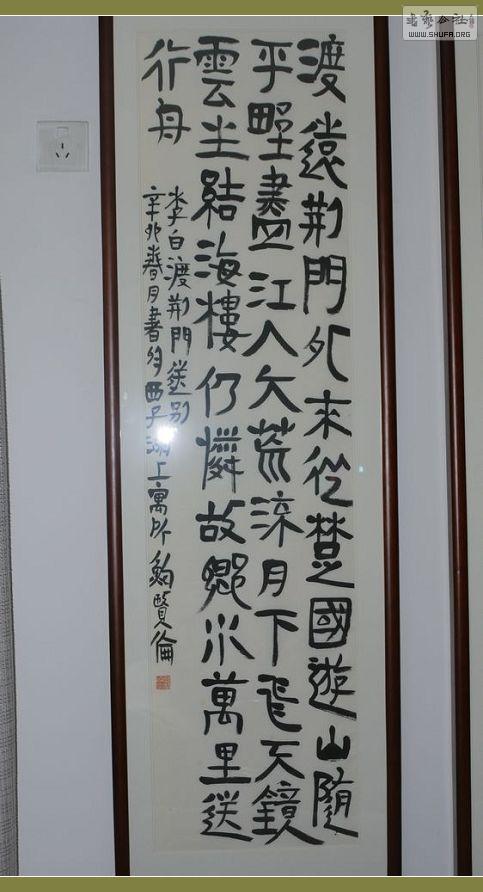 渡遠荊門外來從楚國遊山隨
平野盡江入大荒流月下飛天鏡
雲生結海樓仍憐故鄉水萬里送
行舟
李白渡荊門送別
辛卯春月書於西子湖上寓所鮑賢倫
书法公社
WWW.SHUFA.ORG